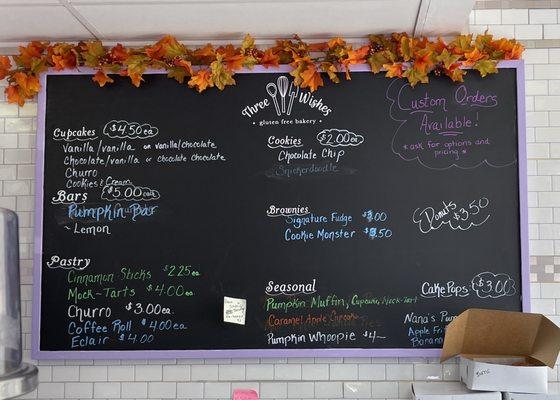 Three Wishes
• gluten free bakery •
Custom Orders
Available!
* ask for options and
pricing *
Cupcakes $4.50 ea
Vanilla/vanilla or vanilla/chocolate
Chocolate/vanilla or chocolate chocolate
Churro
Cookies & Cream
Bars $5.00 each
Pumpkin Bar
~ Lemon
Pastry
Cinnamon Sticks $2.25 ea.
Mock-Tarts $4.00 ea.
Churro $3.00 ea.
Coffee Roll $4.00 ea.
Eclair $4.00
Cookies $2.00 ea.
Chocolate Chip
Snickerdoodle
Brownies
Signature Fudge
Cookie Monster
Donuts
$3.50
Seasonal
Pumpkin Muffin, Cupcake, Mock-Tart
Caramel Apple Cupcake
Pumpkin Whoopie $4—
Cake Pops $3.00
Nana's Pum
Apple Fri
Banana